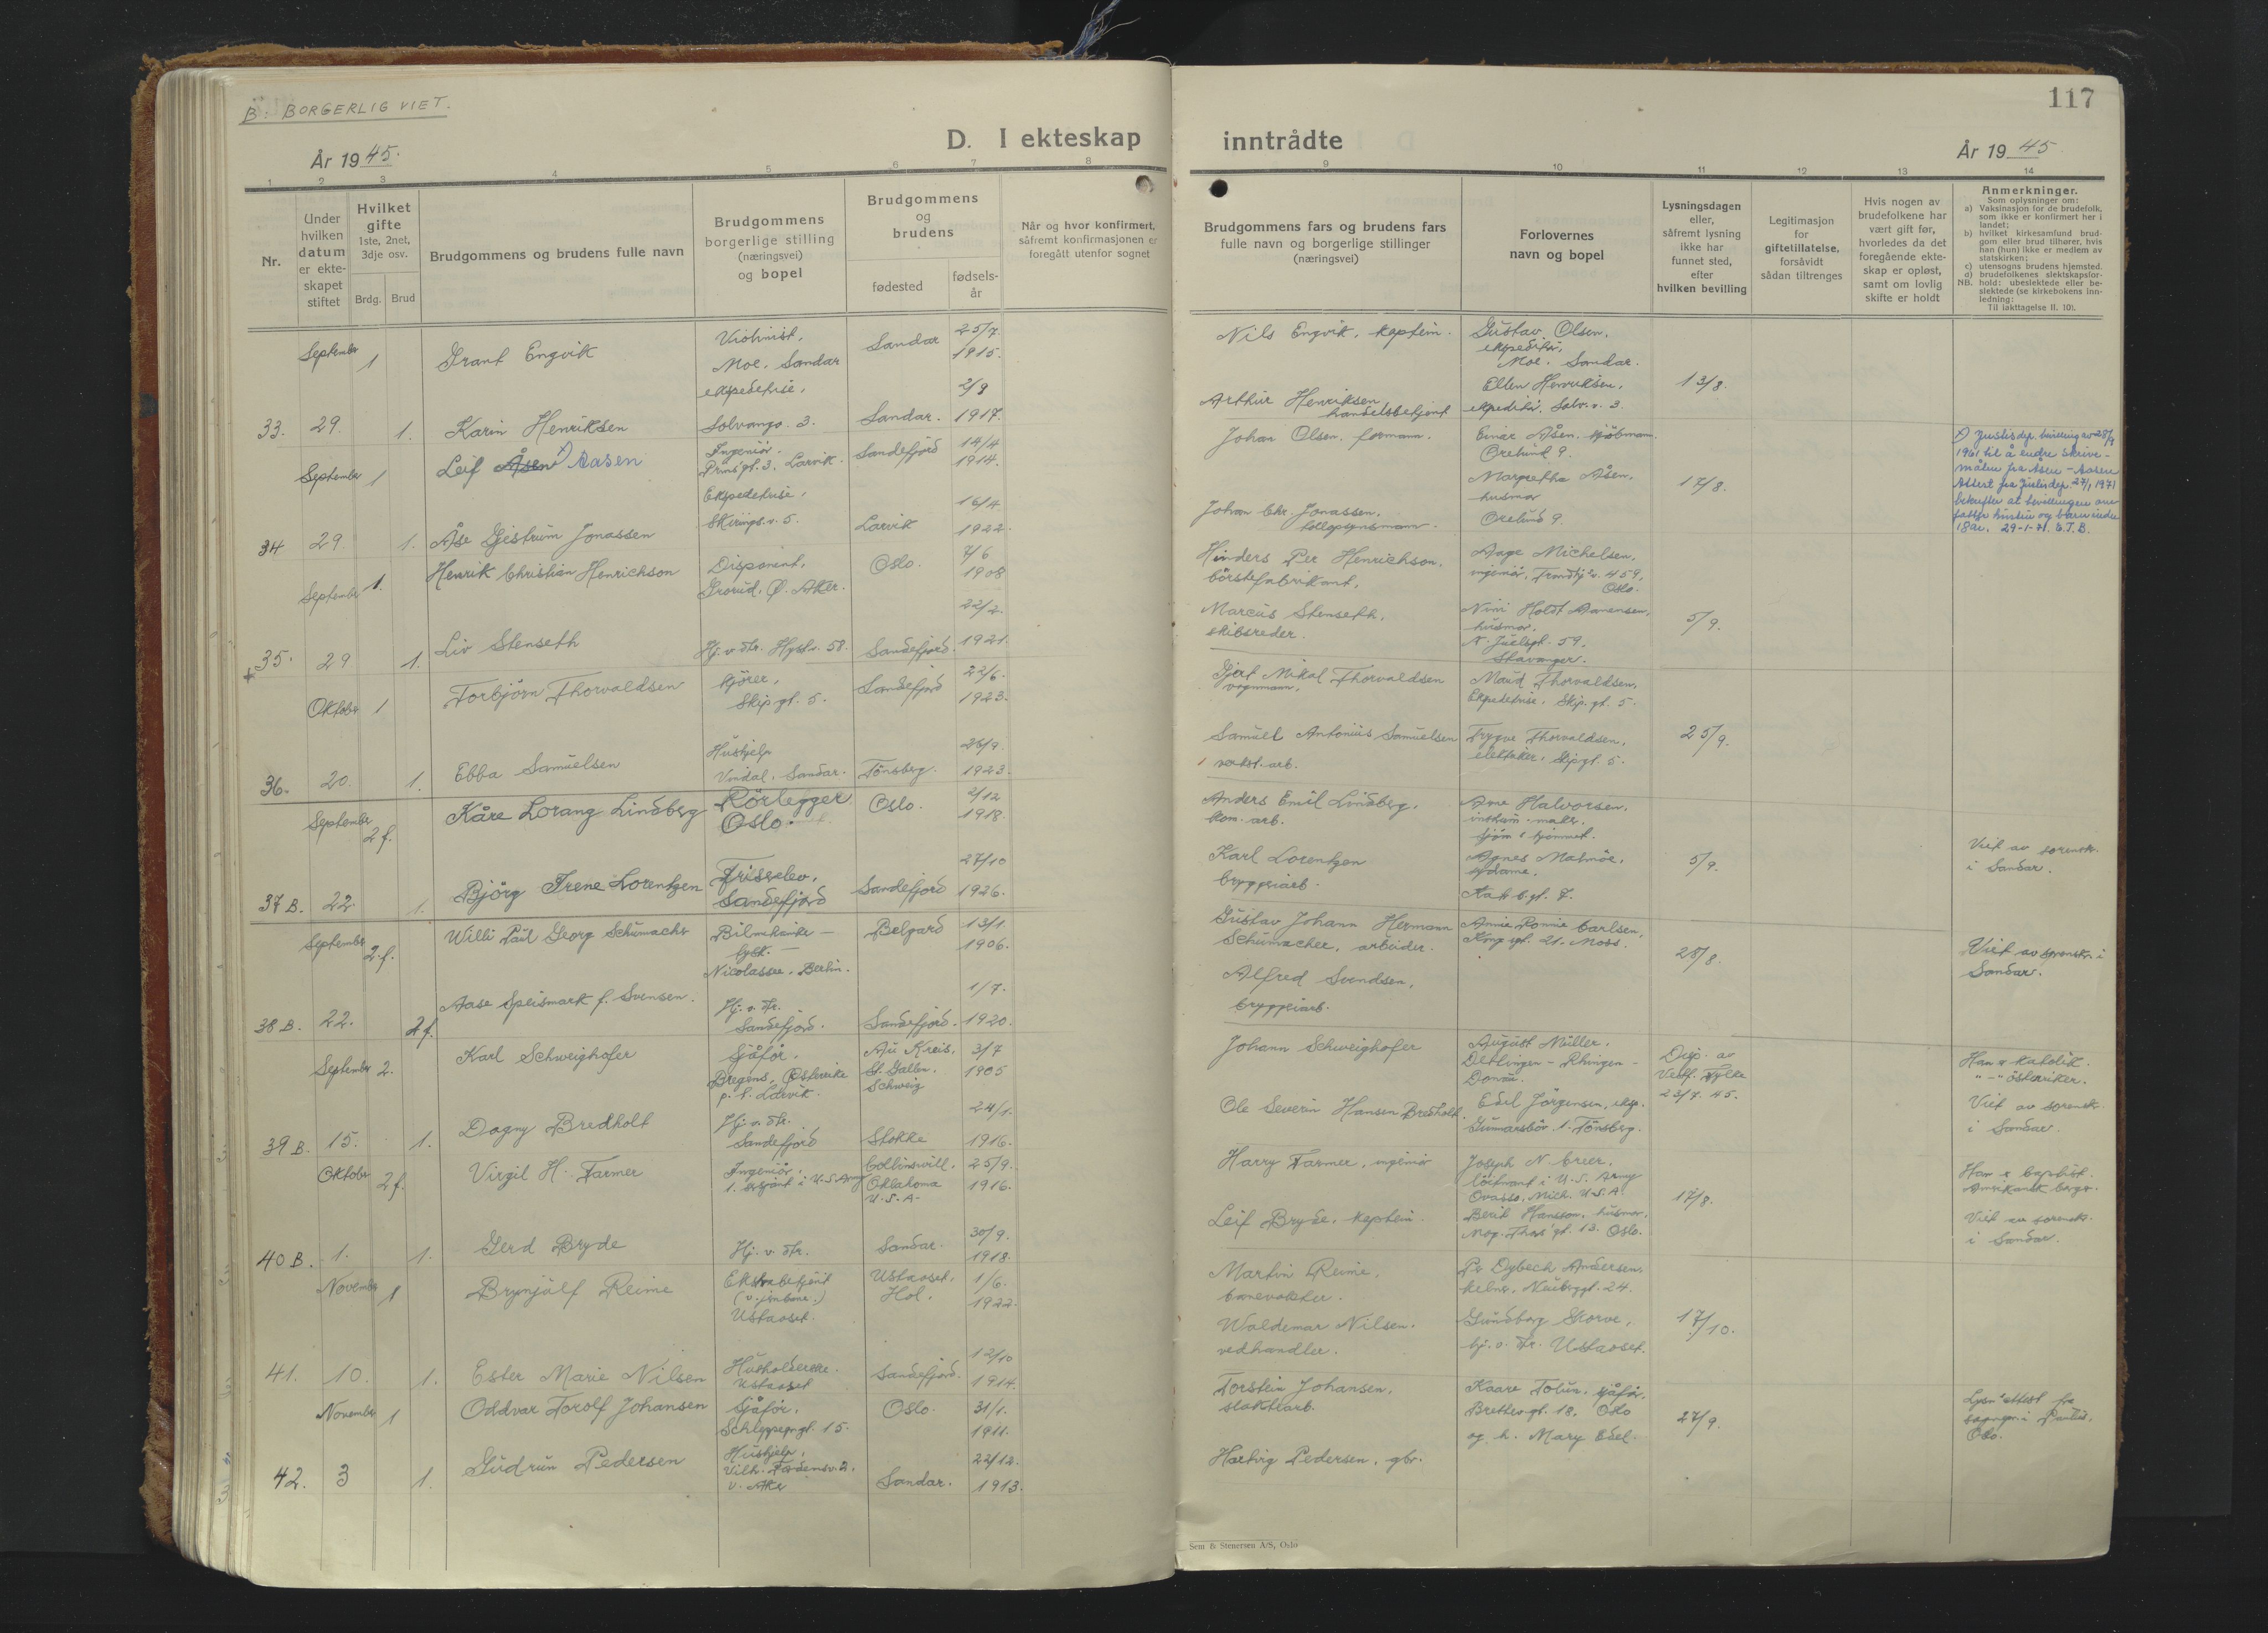 B: BORGERLIG VIET.
117
D. I ekteskap inntrådte
År 1945.
År 1945
1 2 3 4 5 6 7 8 9 10 11 12 13 14
Nr.
Under hvilken datum er ekteskapet stiftet
Hvilket gifte 1ste, 2net, 3dje osv.
Brdg. Brud
Brudgommens og brudens fulle navn
Brudgommens borgerlige stilling (næringsvei) og bopel
Brudgommens og brudens
fødested
fødselsår
Når og hvor konfirmert, såfremt konfirmasjonen er foregått utenfor sognet
Brudgommens fars og brudens fars fulle navn og borgerlige stillinger (næringsvei)
Forlovernes navn og bopel
Lysningsdagen eller, såfremt lysning ikke har funnet sted, efter hvilken bevilling
Legitimasjon for giftetillatelse, forsåvidt sådan tiltrenges
Hvis nogen av brudefolkene har vært gift før, hvorledes da det foregående ekteskap er opløst, samt om lovlig skifte er holdt
Anmerkninger.
Som oplysninger om:
a) Vaksinasjon for de brudefolk, som ikke er konfirmert her i landet;
b) hvilket kirkesamfund brudgom eller brud tilhører, hvis han (hun) ikke er medlem av statskirken;
c) utensogns brudens hjemsted.
d) brudefolkenes slektskapsforhold: ubeslektede eller beslektede (se kirkebokens innledning:
NB. Til iakttagelse ll. 10).
September 1 Grant Engvik Violinist, Moe, Sandar Sandar 25/7. 1915. Nils Engvik, kaptein. Gustav Olsen, ekspeditør, Moe. Sandar.
33. 29. 1. Karin Henriksen ekspedetrise, Solvangv. 3. Sandar. 2/9 1917. Arthur Henriksen handelsbetjent Ellen Henriksen, ekspeditr. Solv.v. 3. 13/8.
September 1 Leif Åsen x) Aasen Ingeniør. Prinsgt. 3. Larvik. Sandefjord 14/4 1914. Johan Olsen, formann. Einar Åsen, kjøbmann. Orelund 9.
34 29. 1. Åse Gjestrum Jonassen Ekspedetrise, Skiringss.v. 5. Larvik 16/4. 1922. Johan Chr. Jonassen, Margretha Åsen, husmor Orelund 9. 17/8.
x) Justisdep. bevilling av 28/9 1961 til å endre skrivemåten fra Åsen – Aasen
Attest fra Justisdep. 27/1 1971 bekrefter at bevillingen omfatter hustru og barn under 18 år. 29-1-71. E.T.B.
September 1. Henrik Christian Henrichson Disponent, Grorud, Ø. Aker. Oslo. 7/6 1908 Hinders Per Henrichson, börstefabrikant, Aage Michelsen, ingeniør, Trondhj.v. 459, Oslo.
35. 29. 1. Liv Stenseth Hj. v. Str. Hystv. 58. Sandefjord. 22/2. 1921. Marcus Stenseth, skibsreder. Nini Holdt Aanensen, husmor, N. Juelsgt. 59. Stavanger. 5/9.
Oktober 1 Torbjörn Thorvaldsen kjörer, Skip.gt. 5. Sandefjord 22/6. 1923. Gjert Nikal Thorvaldsen vognmann, Maud Thorvaldsen, Ekspedetrise, Skip.gt. 5.
36. 20. 1. Ebba Samuelsen Hushjelp Vindal, Sandar. Tönsberg. 1923. Samuel Antonius Samuelsen verkst. arb. Trygve Thorvaldsen, elektriker, Skipgt. 5. 25/9.
September 2 f. Kåre Lorang Lindberg Rörlegger Oslo. Oslo. 2/12 1918. Anders Emil Lindberg, kom. arb. Arne Halvorsen,
37 B. 22. 1. Björg Irene Lorentzen Frisselev, Sandefjord Sandefjord 27/10 1926. Karl Lorentzen bryggeiarb. Agnes Malmöe, 5/9. Viet av sorensk. i Sandar.
September 2.f. Willi Paul Georg Schumacher Bilmekanike – tysk. – Nicolassee, Berlin. Belgard 13/1. 1906. Gustav Johann Hermann Schumacher, arbeider. Annie Ronnie Carlsen, Kongsgt. 21. Moss. 28/8. Viet av sorensk. i Sandar.
38 B. 22. 2 f. Aase Speismark f. Svensen. Hj. v. Str. Sandefjord. Sandefjord. 1/7. 1920. Alfred Svendsen, bryggeiarb.
September 2. Karl Schweighofer Sjåför. Bregens, Österrike p.t. Larvik. Au Kreis, St. Gallen, Schweiz 3/7 1905 Johann Schweighofer August Müller, Donau. Disp. av Vestf. Fylke 23/7. 45. Han er katolik. " – " österriker.
39 B. 15. 1. Dagny Bredholt Hj. v. Str. Sandefjord Stokke 24/1. 1916. Ole Severin Hansen Bredholt. Edel Jörgensen, eksp. Gunnarsböv. 1. Tönsberg. Viet av sorensk. i Sandar.
Oktober 2 f. Virgil H. Farmer Ingeniör, 1. sersjant i U.S. Army Collinsvill, Oklahoma U.S.A. 25/9. 1916. Harry Farmer, ingeniör Joseph N. Creer, löitnant i U.S. Army Owasso, Mich. U.S.A. 17/8. Han er baptist. Amrikansk borger.
40 B. 1. 1. Gerd Bryde Hj. v. Str. Sandar. 30/9. 1918. Leif Bryde, kaptein. Berit Hansson, husmor, Mog. Thors'gt. 13. Oslo. Viet av sorensk. i Sandar.
November 1 Brynjulf Reime Ekstrabetjent (v. jernbane.) Ustaoset. Ustaoset, Hol. 1/6. 1922. Martin Reime, banevokter. Pr Dybech Andersen, kelner, Naubergt. 24.
41. 10. 1. Ester Marie Nilsen Husholderske. Ustaoset Sandefjord. 12/10 1914. Waldemar Nilsen. vedhandler. Gundborg Skorve, hj. v. Str. Ustaoset. 17/10.
November 1 Oddvar Torolf Johansen Sjåför, Schleppegr.gt. 15. Oslo. 31/1. 1911. Torstein Johansen, slakteriarb. Kaare Tolun, sjåför, Brettev.gt. 18, Oslo og h. Mary Edel. 27/9. Lysn. attest fra sogngpr. i Paulus, Oslo.
42. 3 1. Gudrun Pedersen Hushjelp, Vilh. Fardensv. 2. V. Aker Sandar. 22/12. 1913. Hartvig Pedersen, gbr.
Sem & Stenersen A/S, Oslo